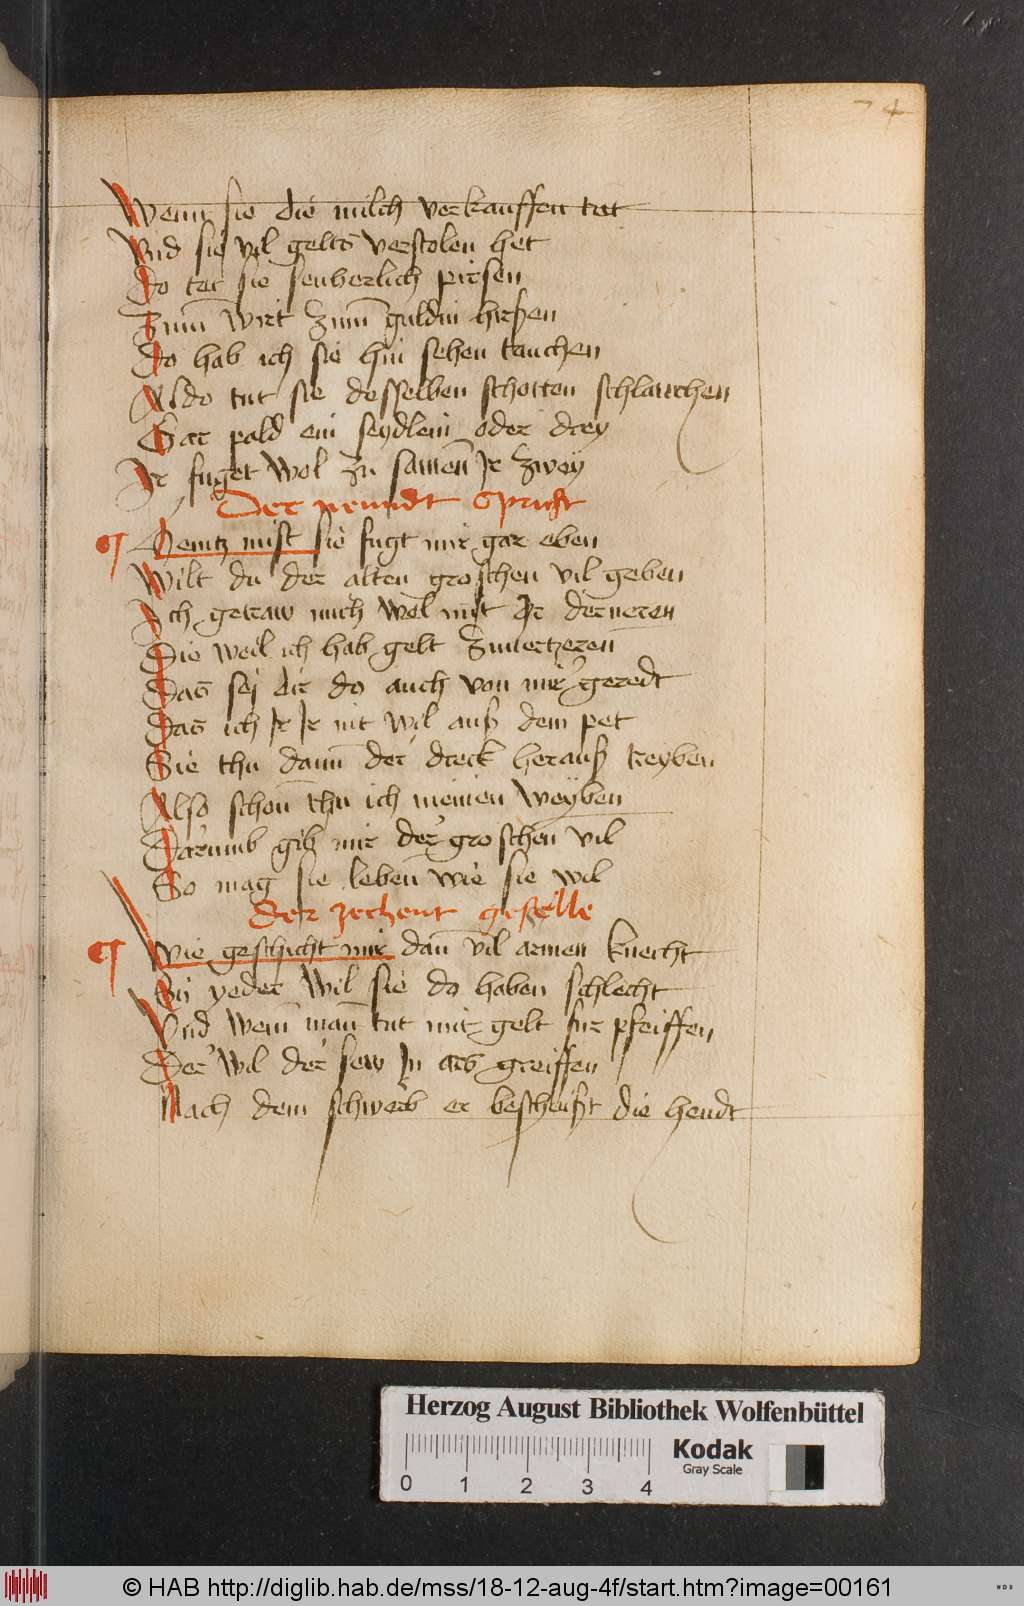 74
Wenn sie die milch verkauffen tut
Vnd sie vil gelts verstolen het
Do tet sie seuberlich pirsen
Zum wirt zum guldin hirßen
Do hab ich sie hin sehen tauchen
Aldo tut sie desselben schotten schlauchen
Gar pald ein seydlein oder drey
Ir fuget wol zu samen Ir zwey
Der neundt Spricht
Hentz mist sie fugt mir gar eben
Wilt du der alten groschen vil geben
Ich getraw mich wol mit Ir derneren
Die weil ich hab gelt zuuertzeren
Das sej dir do auch von mir geredt
Das ich Ir Ir nit wil auß dem pet
Sie thu dann der dreck herauß treyben
Also schon thu ich meinen weyben
Darumb gib mir der groschen vil
So mag sie leben wie sie wil
der zechent geselle
Wie geschicht mir dan vil armen knecht
Ein yeder wil sie do haben schlecht
Vnd wem man tut mit gelt fur pfeiffen
Der wil der sew In ars greiffen
Nach dem schwerb er bescheißt die hendt
Herzog August Bibliothek Wolfenbüttel
Kodak
Gray Scale
0 1 2 3 4
© HAB http://diglib.hab.de/mss/18-12-aug-4f/start.htm?image=00161